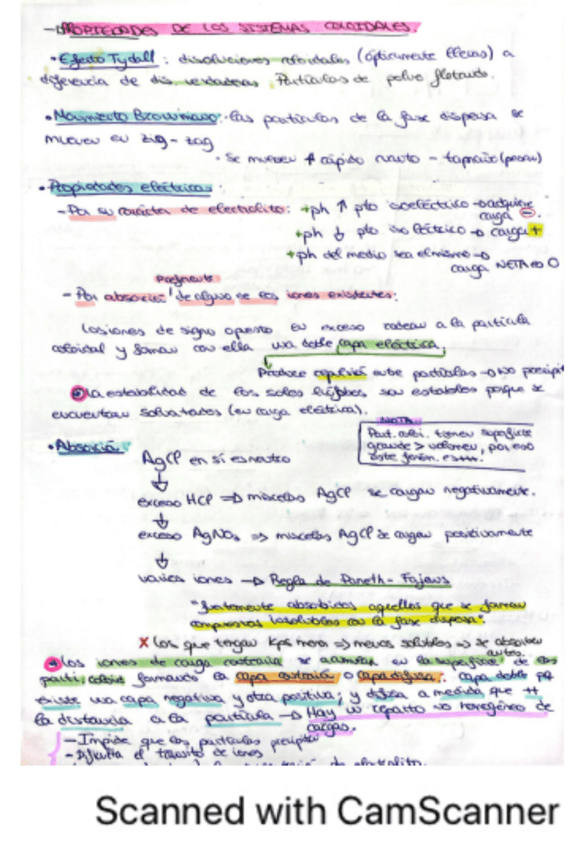 PROPIEDADES DE LOS SISTEMAS COLOIDALES.
• Efecto Tydall: disoluciones coloidales (ópticamente llenas) a
diferencia de dis. verdaderas. Partículas de polvo flotando.
• Movimiento Browniano: las partículas de la fase dispersa se
mueven en zig-zag
· Se mueven + rápido cuanto - tamaño (peso)
• Propiedades eléctricas:
- Por su carácter de electrolito: +ph ↑ pto isoeléctrico → adquiere
carga ⊖.
+ph ↓ pto isoeléctrico → carga +
+ph del medio sea el mismo →
carga NETA = 0
Preferente
- Por absorción de alguno de los iones existentes:
Los iones de signo opuesto en exceso rodean a la partícula
coloidal y forman con ella una doble capa eléctrica.
Produce repulsión entre partículas → no precipit
La estabilidad de los soles liófobos son estables porque se
encuentran solvatados (en carga eléctrica).
NOTA
Part. coloi. tienen superficie
grande > volumen, por eso
este fenóm.
• Absorción
AgCl en sí es neutro
exceso HCl ⇒ micelas AgCl se cargan negativamente.
exceso AgNO₃ ⇒ micelas AgCl se cargan positivamente
varios iones → Regla de Paneth-Fajans
"fuertemente absorbidos aquellos que se forman
compuestos insolubles con la fase dispersa".
X Los que tengan Kps menor ⇒ menos solubles ⇒ se absorben
antes.
Los iones de carga contraria se acumulan en la superficie de las
partí. coloide formando la capa exterior o capa difusa. capa doble pq
tiene una capa negativa y otra positiva; y difusa a medida que ++
la distancia a la partícula → Hay un reparto no homogéneo de
cargas.
- Impide que las partículas precipiten
- Dificulta el tránsito de iones
de electrolito.
Scanned with CamScanner